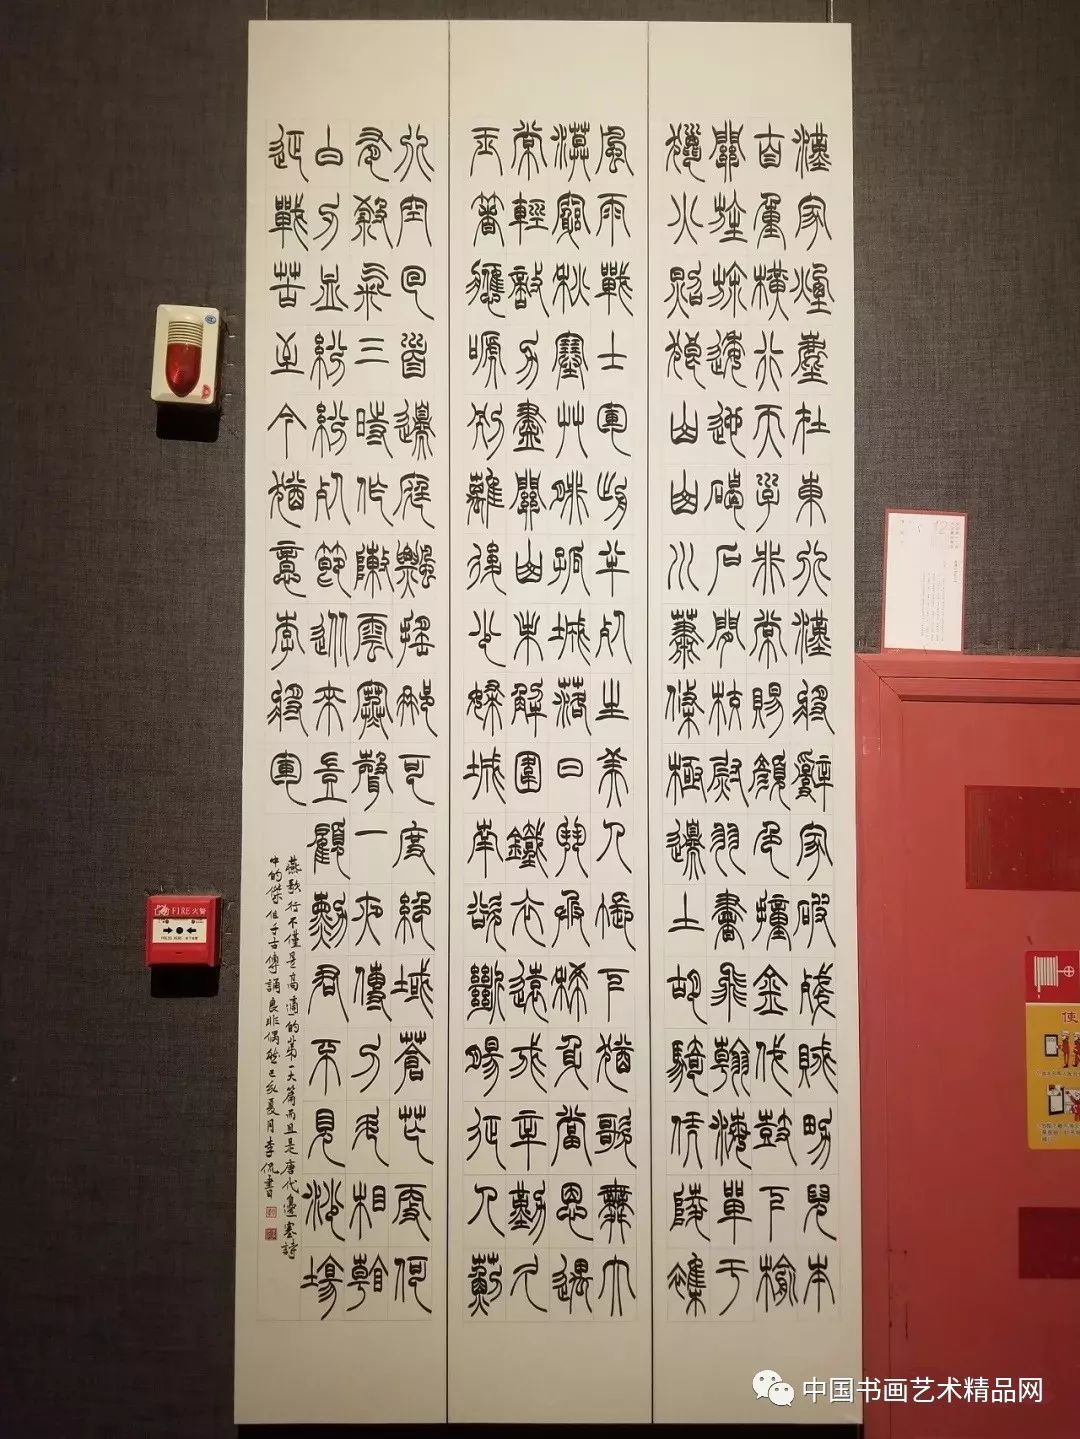 漢家煙塵在東北漢將辭家破殘賊男兒本
自重橫行天子非常賜顏色摐金伐鼓下榆
關旌旆逶迤碣石間校尉羽書飛瀚海單于
獵火照狼山山川蕭條極邊土胡騎憑陵雜
風雨戰士軍前半死生美人帳下猶歌舞大
漠窮秋塞草腓孤城落日鬥兵稀身當恩遇
常輕敵力盡關山未解圍鐵衣遠戍辛勤久
玉箸應啼別離後少婦城南欲斷腸征人薊
北空回首邊庭飄颻那可度絕域蒼茫更何
有殺氣三時作陣雲寒聲一夜傳刁斗相看
白刃血紛紛死節從來豈顧勳君不見沙場
征戰苦至今猶憶李將軍
燕歌行不僅是高適的第一大篇而且是唐代邊塞詩
中的傑作千古傳誦良非偶然己亥夏月李侃書
FIRE 火警
使
中国书画艺术精品网